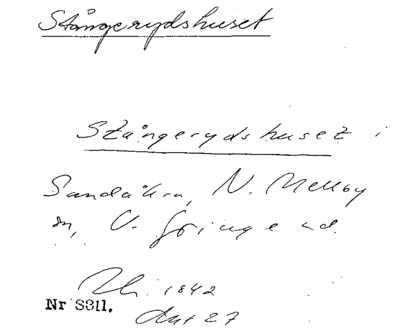 Stångerydshuset
Stångerydshuset i
Sandåkra, N. Mellby
sn, V. Göinge hd.
1842
Nr S311.
27